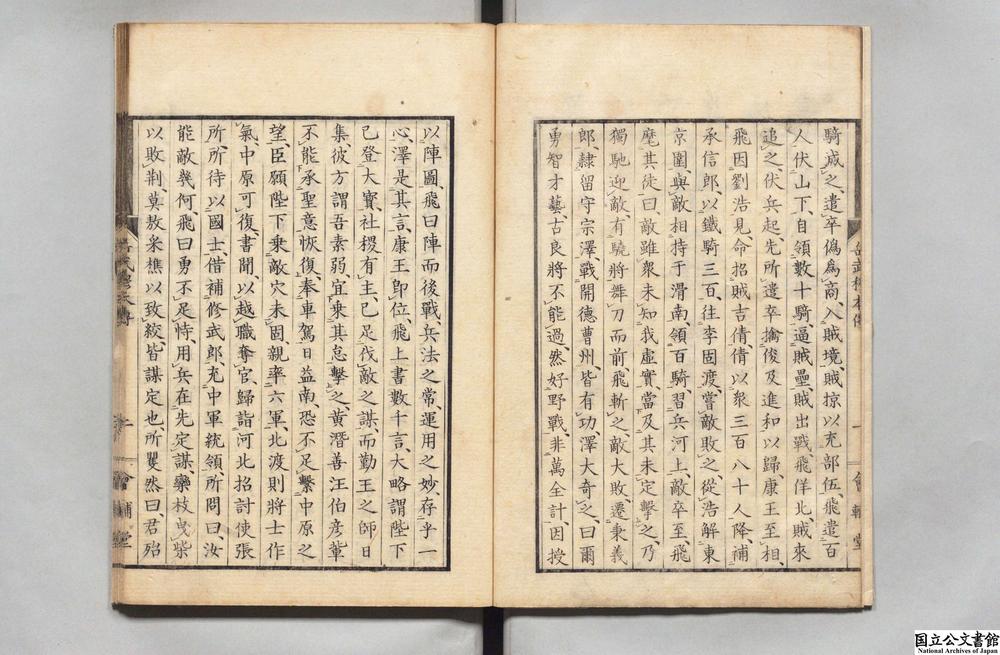 騎滅之、遣卒僞爲商、入賊境、賊掠以充部伍、飛遣百
人伏山下、自領數十騎逼賊壘、賊出戰、飛佯北、賊來
追之、伏兵起、先所遣卒擒俊及進和以歸、康王至相、
飛因劉浩見、命招賊吉倩、倩以衆三百八十人降、補
承信郎、以鐵騎三百、往李固渡、嘗敵敗之、從浩解東
京圍、與敵相持于滑南、領百騎、習兵河上、敵卒至、飛
麾其徒曰、敵雖衆未知我虛實、當及其未定擊之、乃
獨馳迎敵、有驍將舞刀而前、飛斬之、敵大敗、遷秉義
郎、隸留守宗澤、戰開德曹州、皆有功、澤大奇之、曰爾
勇智才藝、古良將不能過、然好野戰、非萬全計、因授
以陣圖、飛曰陣而後戰、兵法之常、運用之妙、存乎一
心、澤是其言、康王即位、飛上書數千言、大略謂陛下
已登大寶、社稷有主、已足伐敵之謀、而勤王之師日
集、彼方謂吾素弱、宜乘其怠擊之、黃潛善汪伯彥輩
不能承聖意恢復、奉車駕日益南、恐不足繫中原之
望、臣願陛下乘敵穴未固、親率六軍、北渡則將士作
氣、中原可復、書聞、以越職奪官、歸詣河北招討使張
所、所待以國士、借補修武郎充中軍統領、所問曰、汝
能敵幾何、飛曰勇不足恃、用兵在先定謀、欒枝曳柴
以敗荆、莫敖采樵以致絞、皆謀定也、所矍然曰、君殆
國立公文書館
National Archives of Japan